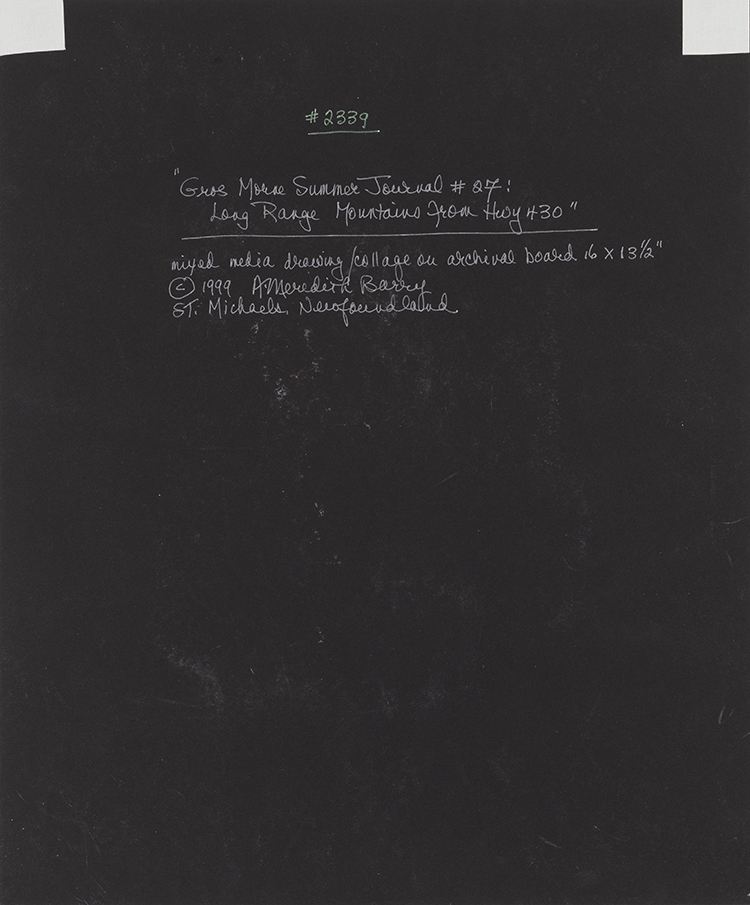 #2339
"Gros Morne Summer Journal #27:
Long Range Mountains from Hwy 430"
mixed media drawing/collage on archival board 16 x 13½"
© 1999 A Meredith Barry
ST. Michaels, Newfoundland